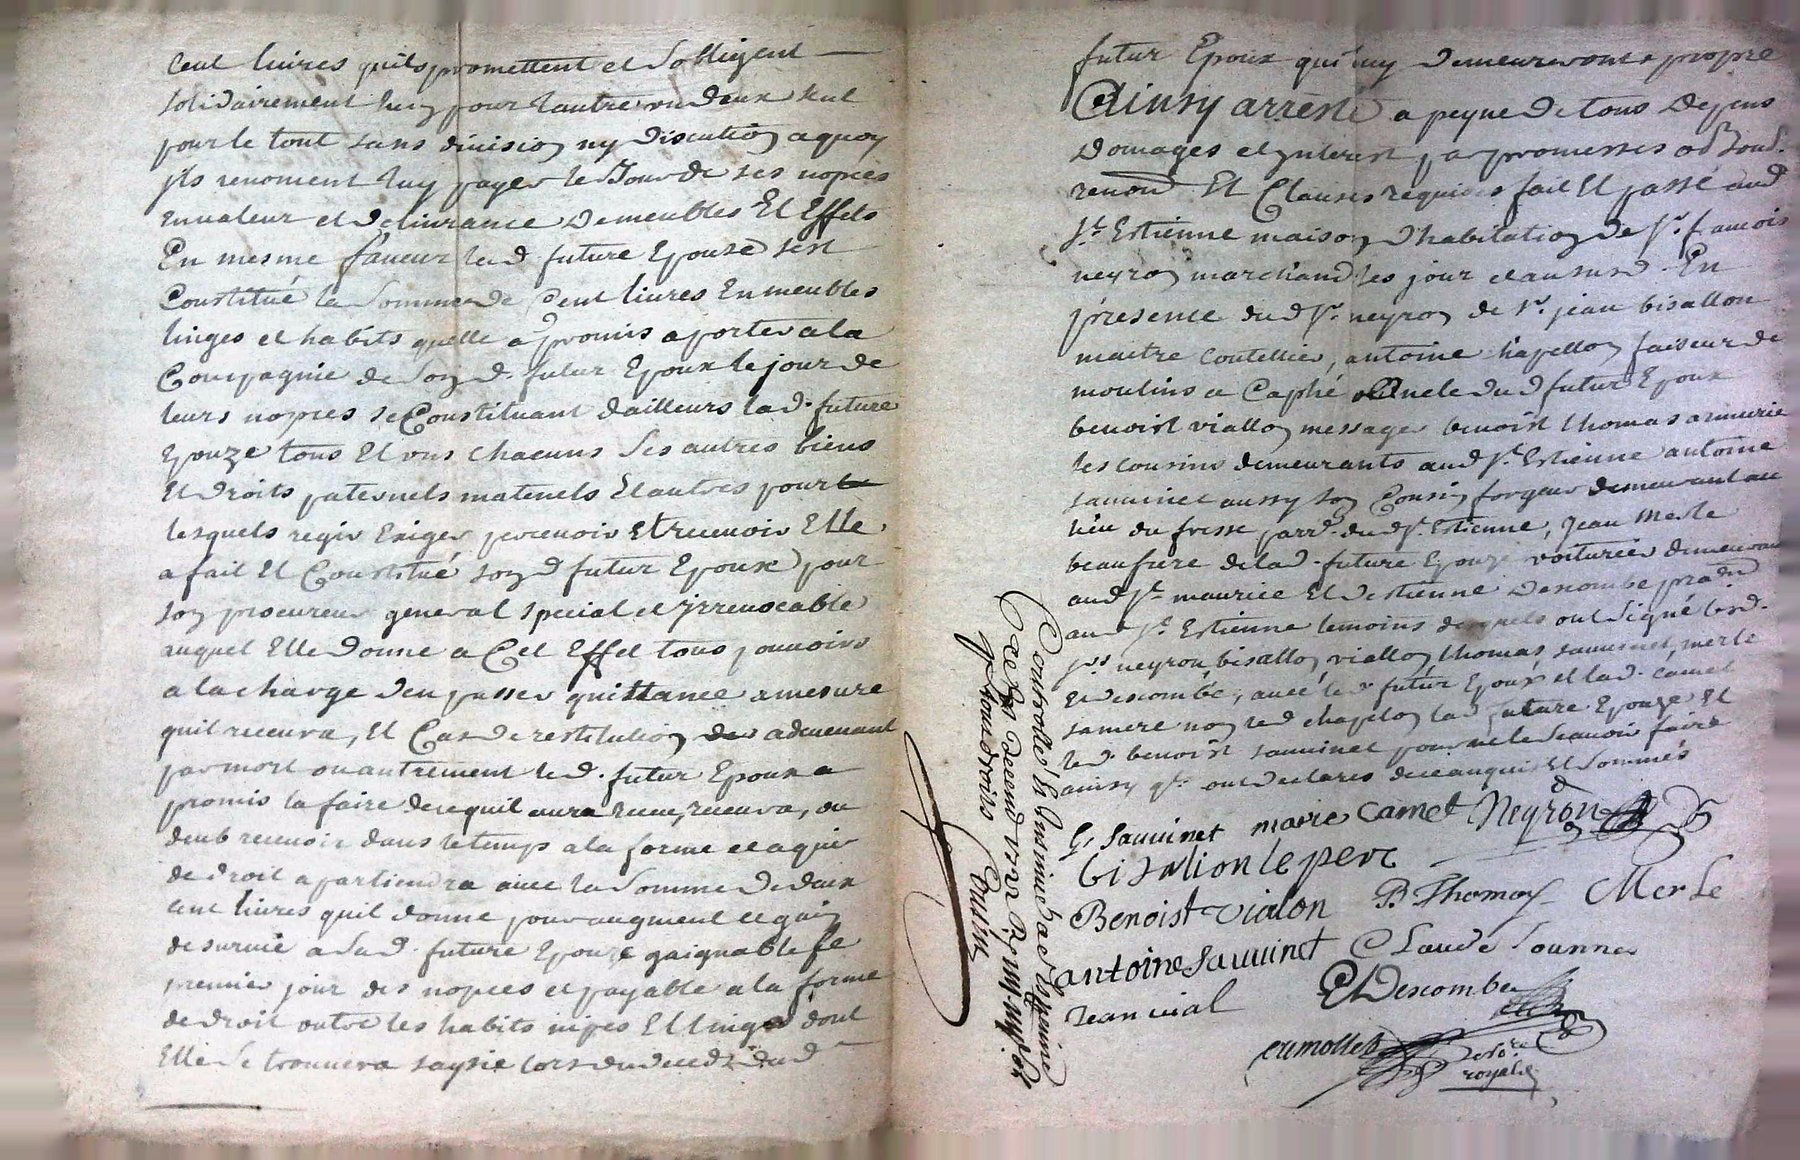 Cent livres quils promettent et sobligent
solidairement luy pour lautre un deux seul
pour le tout sans division ny discution a quoy
jls renoncent luy payer le Jour de ses nopces
en valeur et delivrance de meubles Et Effets
En mesme faveur lad. future Epouse sest
Constitué la somme de Cent livres En meubles
linges et habits quelle a promis aporter a la
Compagnie de son d. futur Epoux le jour de
leurs nopces se Constituant dailleurs lad. future
Epouze tous Et uns chacuns ses autres biens
Et droits paternels maternels Et autres pour
lesquels regir Exiger percevoir Et recevoir Elle
a fait Et Constitué son d futur Epoux pour
son procureur general special et jrrevocable
auquel Elle donne a Cet Effet tous pouvoirs
a la charge den passer quittance a mesure
quil recevra, Et Cas de restitution advenant
par mort ou autrement led. futur Epoux a
promis la faire de ce quil aura receu, recevra, ou
deub recevoir dans le temps a la forme et a qui
de droit apartiendra avec la somme de deux
cent livres quil donne pour augment et gain
de survie a sad. future Epouze gaignable le
premier jour des nopces et payable a la forme
de droit outre les habits nipes Et linges dont
Elle se trouvera saysie lors du deceds dud
futur Epoux qui luy demeureront propre
Ainsy arresté a peyne de tous depens
domages et jnterest par promesses oblond.
renond Et Clauses requises fait Et passé aud
St. Estienne maison dhabitation de sr. francois
neyron marchand les jour et an susd. En
présence dud sr. neyron de sr. jean bisallon
maitre coutellier, antoine chapellon faiseur de
moulins a Caphé oncle dud futur Epoux
benoist viallon messager benoist thomas armurie
les cousins demeurants aud St. Estienne antoine
sauvinet aussy son Cousin forgeur demeurant au
lieu du fresse parr. dud St. Estienne, Jean Merle
beaufrere de lad. future Epouze voiturier demeurant
aud St. maurice Et Estienne descombe pratien
aud St. Estienne temoins desquels ont signé lesd.
srs neyron, bisallon, viallon, thomas, sauvinet, merle
et descombe, avec led futur Epoux et lad. camet
sa mere non led chapelon lad future Epouze Et
led. benoist sauvinet pour ne le scavoir faire
ainsy qls. ont declarés de ce enquis Et sommés
G. Sauvinet marie camet Neyron
bisallion le pere
Benoist vialon B. Thomas Merle
antoine sauvinet Claude
Jean vial E Descombe
cumollet
royal
Controllé & Insinué a St Estienne
pour droits Cousin